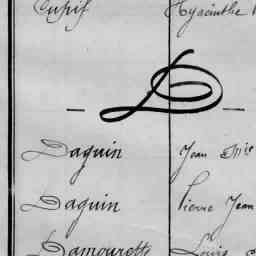 Cupif Hyacinthe
— D —
Daguin Jean Mie
Daguin Pierre Jean
Damourette Louis